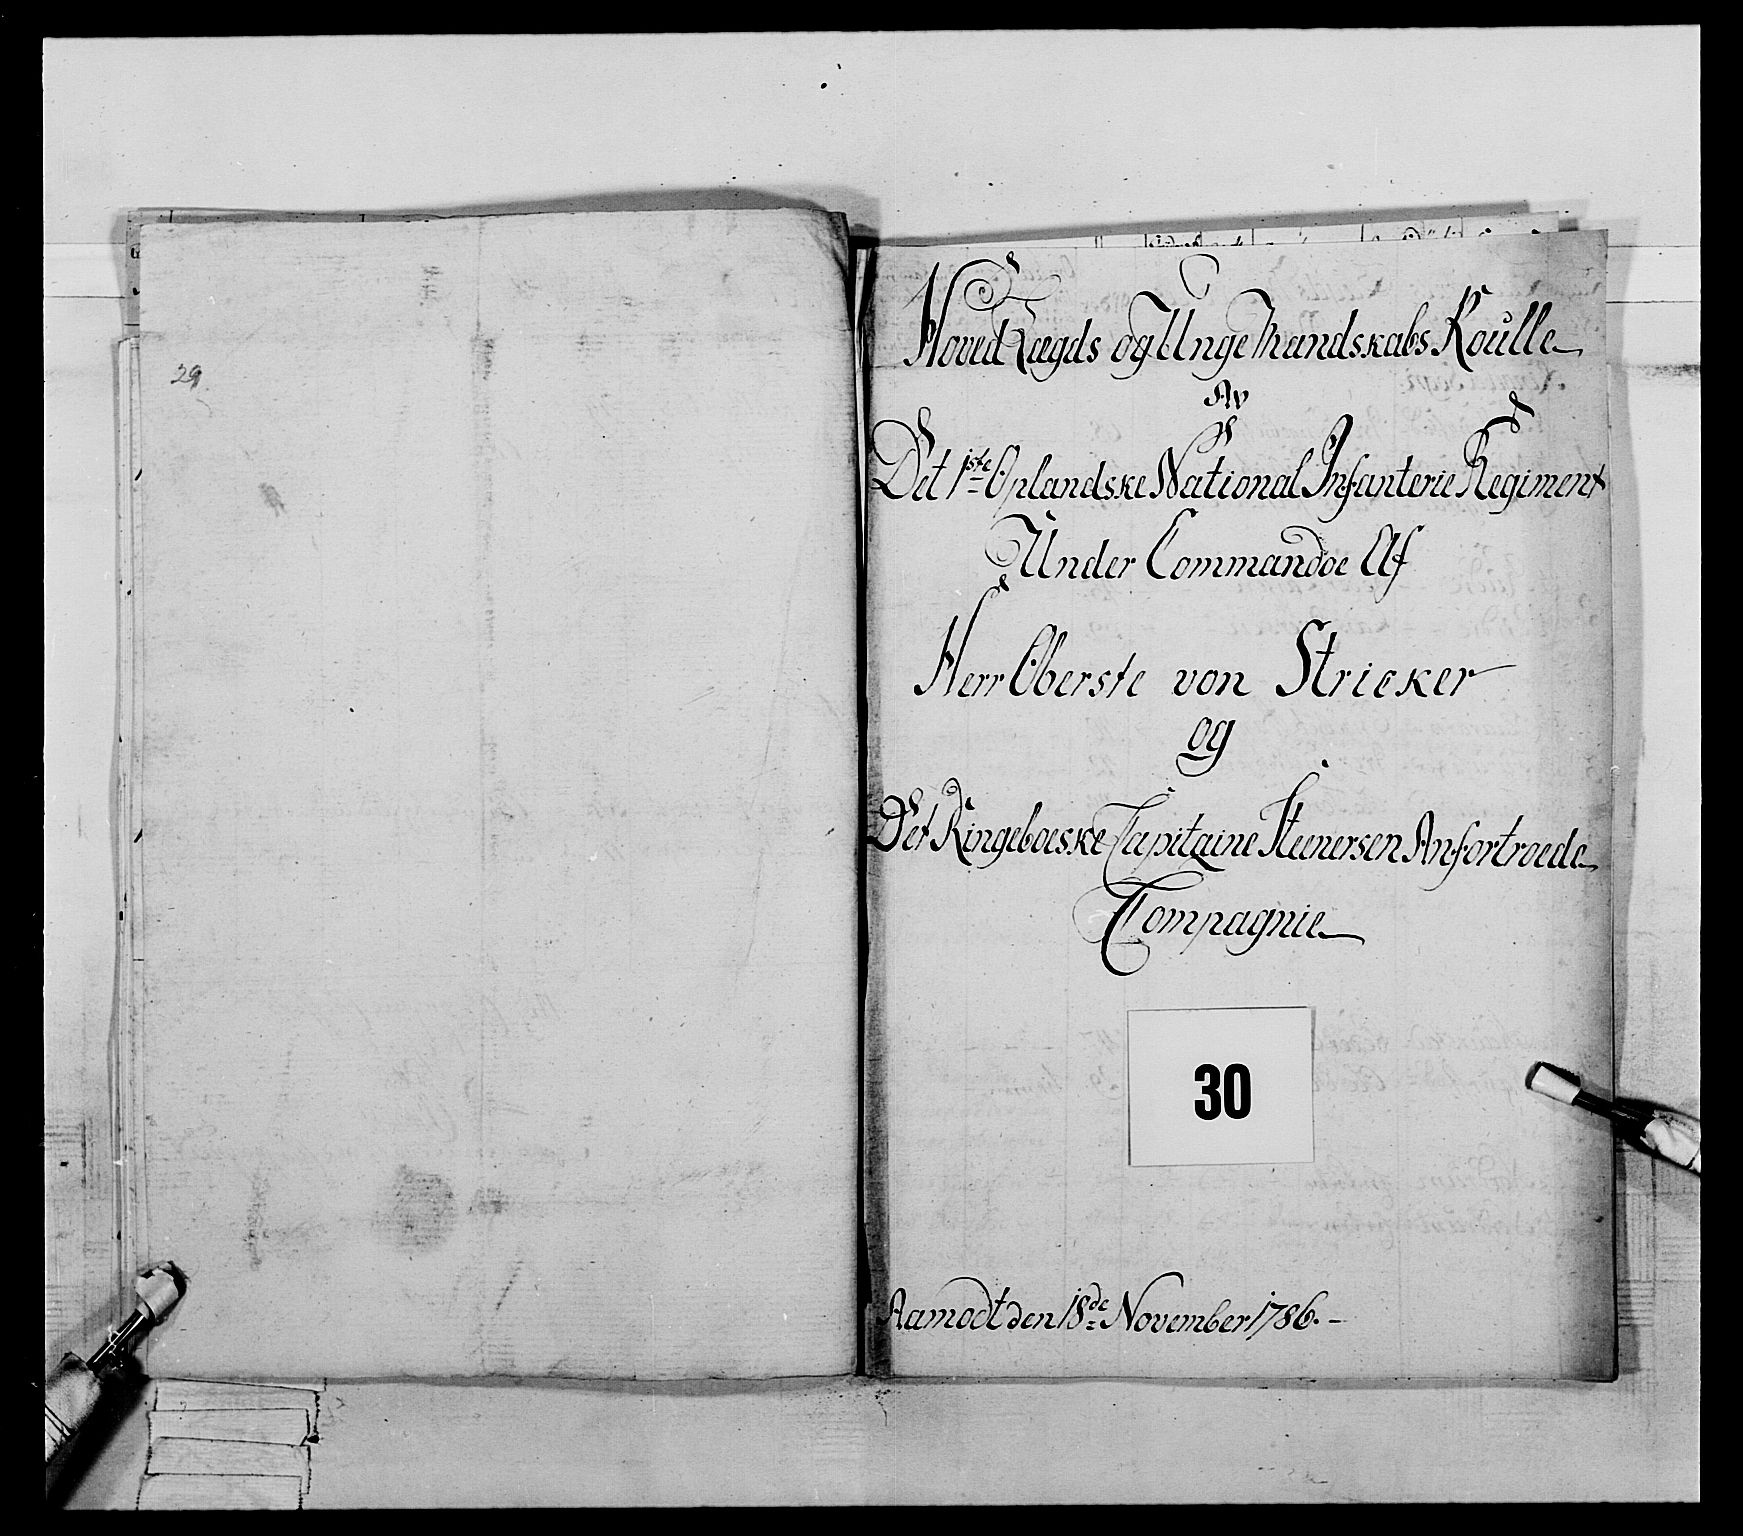 29
Hoved Lægds og Unge Mandskabs Roulle
Av
Det 1ste Oplandske National Infanterie Regiment
Under Commandoe Af
Herr Oberste von Stricker
og
Det Ringeboeske Capitaine Steenersen Anfortroede
Compagnie
30
Aamodt den 18de November 1786. -